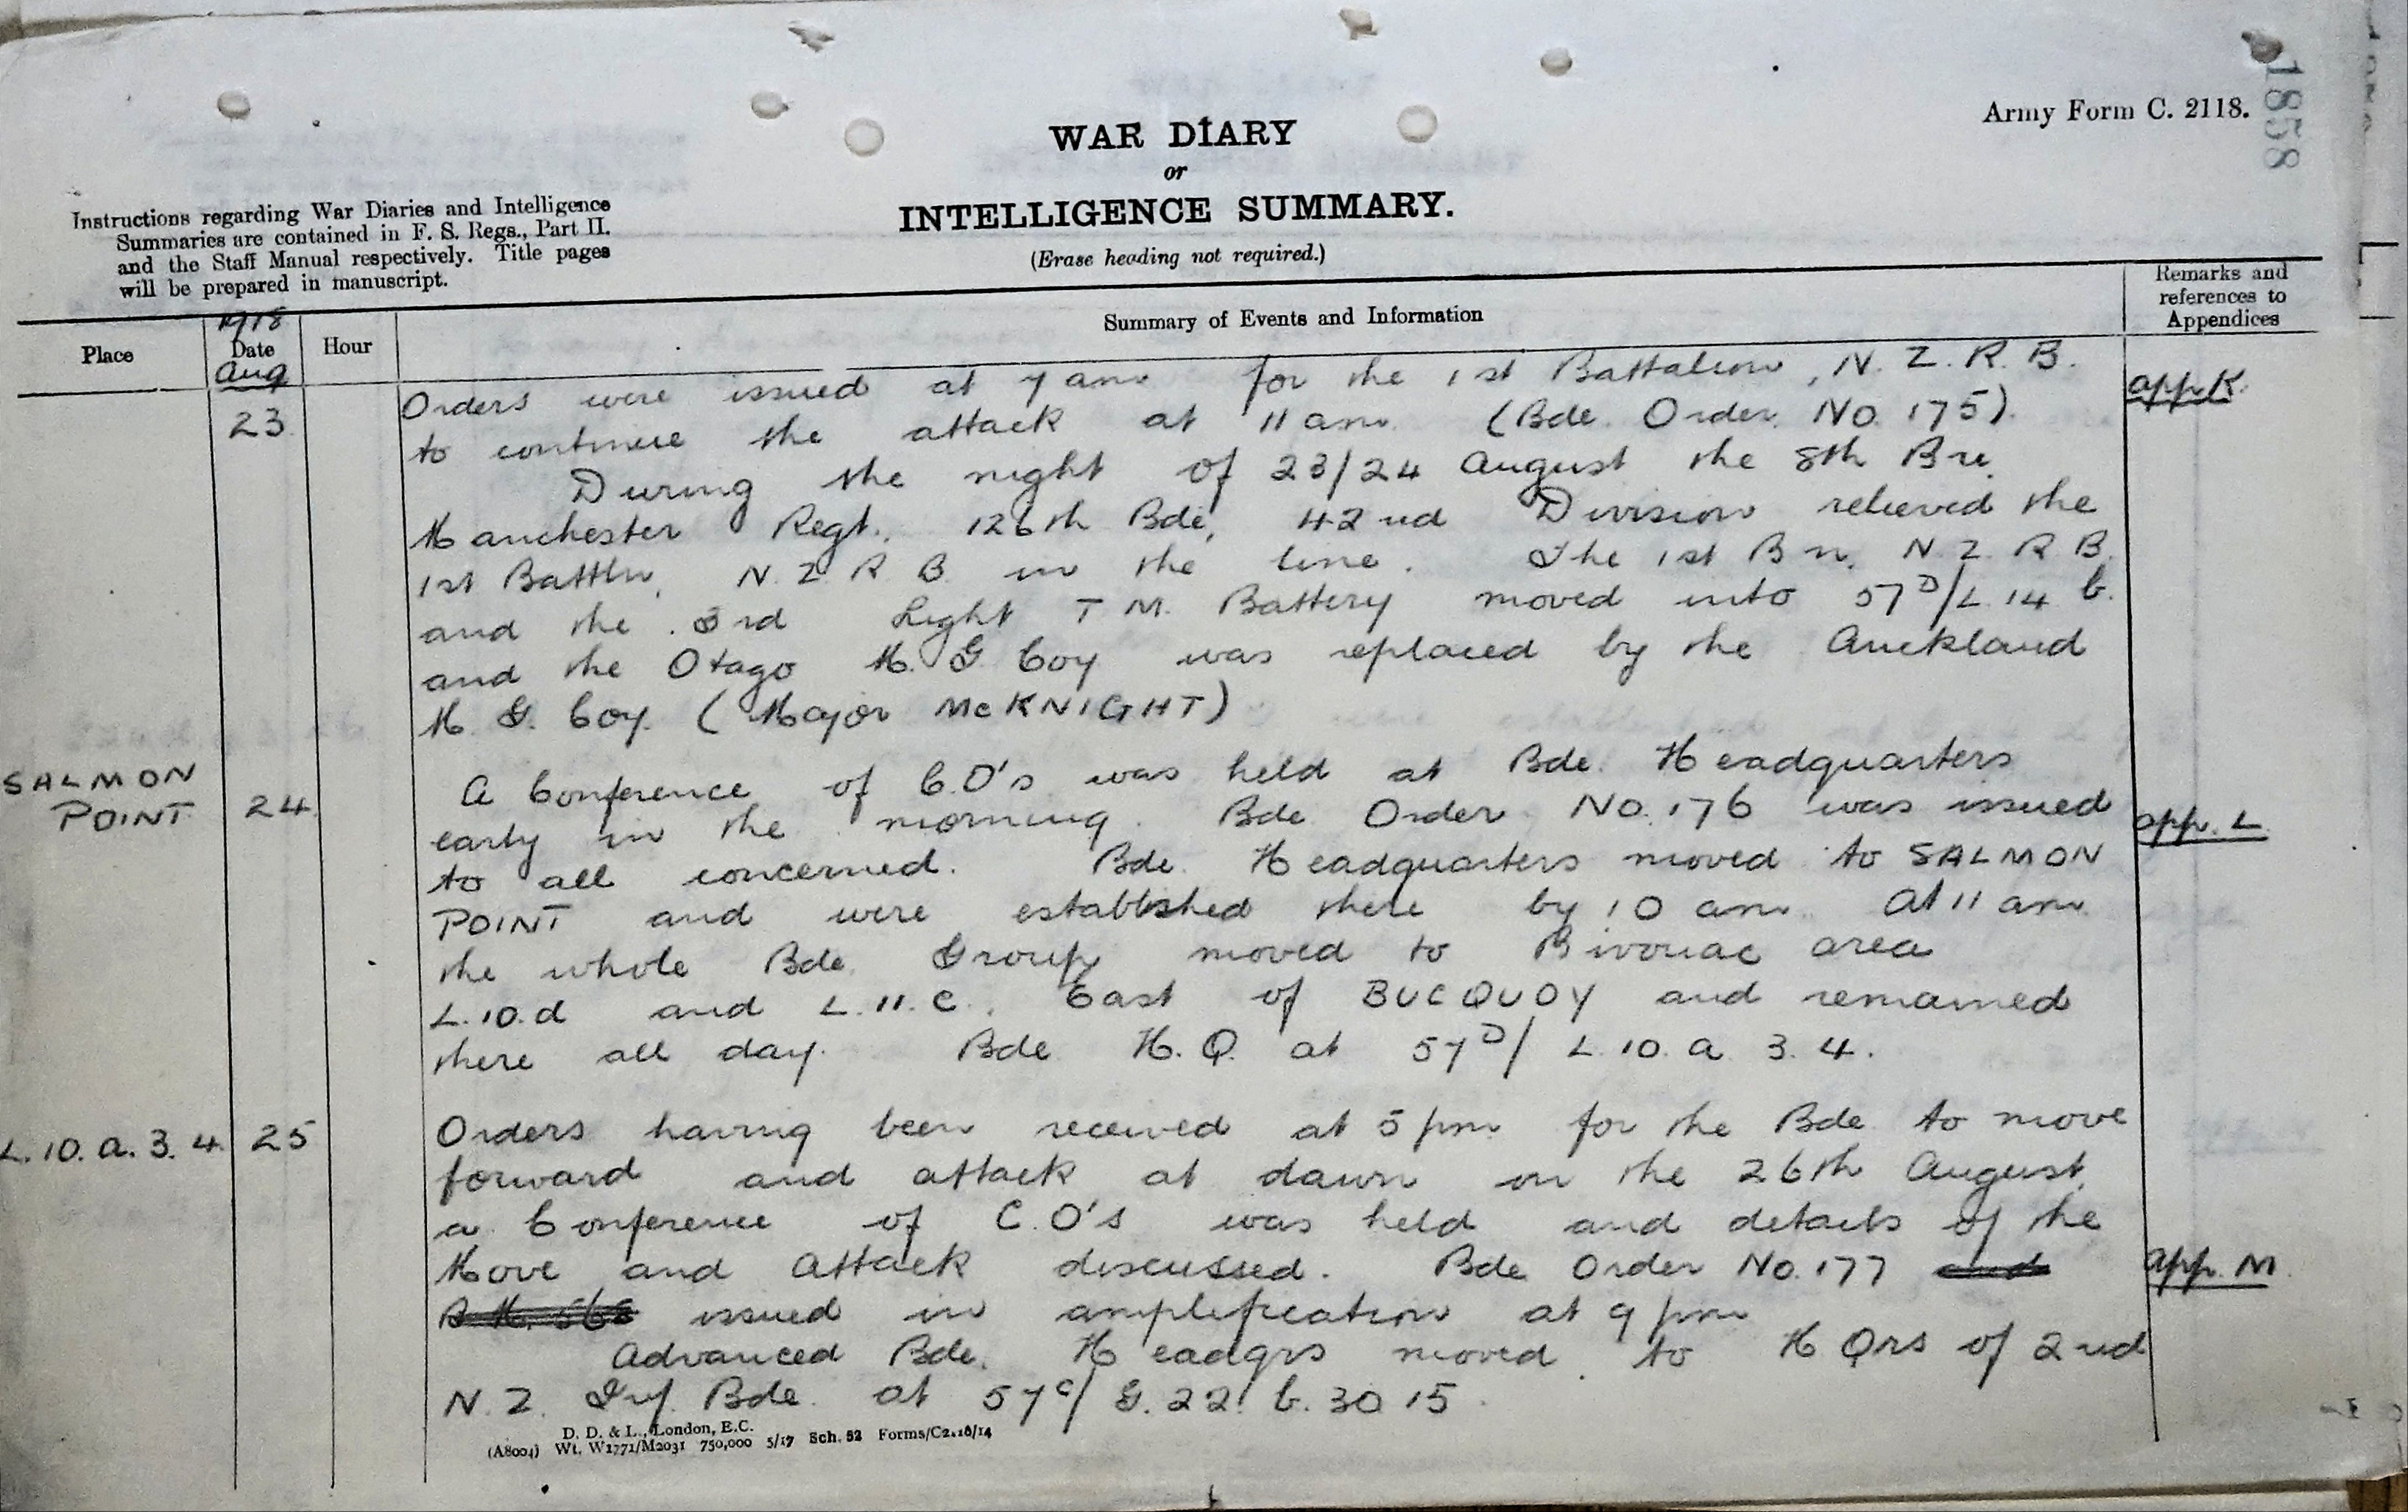 1858
Army Form C. 2118.
WAR DIARY
or
INTELLIGENCE SUMMARY.
(Erase heading not required.)
Instructions regarding War Diaries and Intelligence
Summaries are contained in F. S. Regs., Part II.
and the Staff Manual respectively. Title pages
will be prepared in manuscript.
Place
1918
Date
Aug
Hour
Summary of Events and Information
Remarks and
references to
Appendices
23 Orders were issued at 7 am for the 1st Battalion, N. Z. R. B. app. K.
to continue the attack at 11 am. (Bde. Order. No. 175).
During the night of 23/24 August the 8th Bn.
Manchester Regt., 126th Bde, 42nd Division relieved the
1st Battln, N. Z. R. B. in the line. The 1st Bn. N. Z. R. B.
and the 3rd Light T. M. Battery moved into 57D/L.14 b.
and the Otago M. G. Coy was replaced by the Auckland
M. G. Coy. (Major McKNIGHT)
SALMON
POINT 24 A Conference of C.O's was held at Bde. Headquarters
early in the morning. Bde Order No. 176 was issued app. L
to all concerned. Bde. Headquarters moved to SALMON
POINT and were established there by 10 am. At 11 am
the whole Bde. Group moved to Bivouac area
L.10.d and L.11.c. East of BUCQUOY and remained
there all day. Bde H.Q. at 57D/ L.10.a 3.4.
L.10.a.3.4. 25 Orders having been received at 5 pm for the Bde to move
forward and attack at dawn on the 26th August,
a Conference of C.O's was held and details of the
Move and Attack discussed. Bde Order No. 177 and app. M
issued in amplification at 9 pm
Advanced Bde. Headqrs moved to H Qrs of 2nd
N. Z. Inf. Bde. at 57C/ G.22. b.30 15.
D. D. & L., London, E.C.
(A8004) Wt. W1771/M2031 750,000 5/17 Sch. 52 Forms/C2118/14